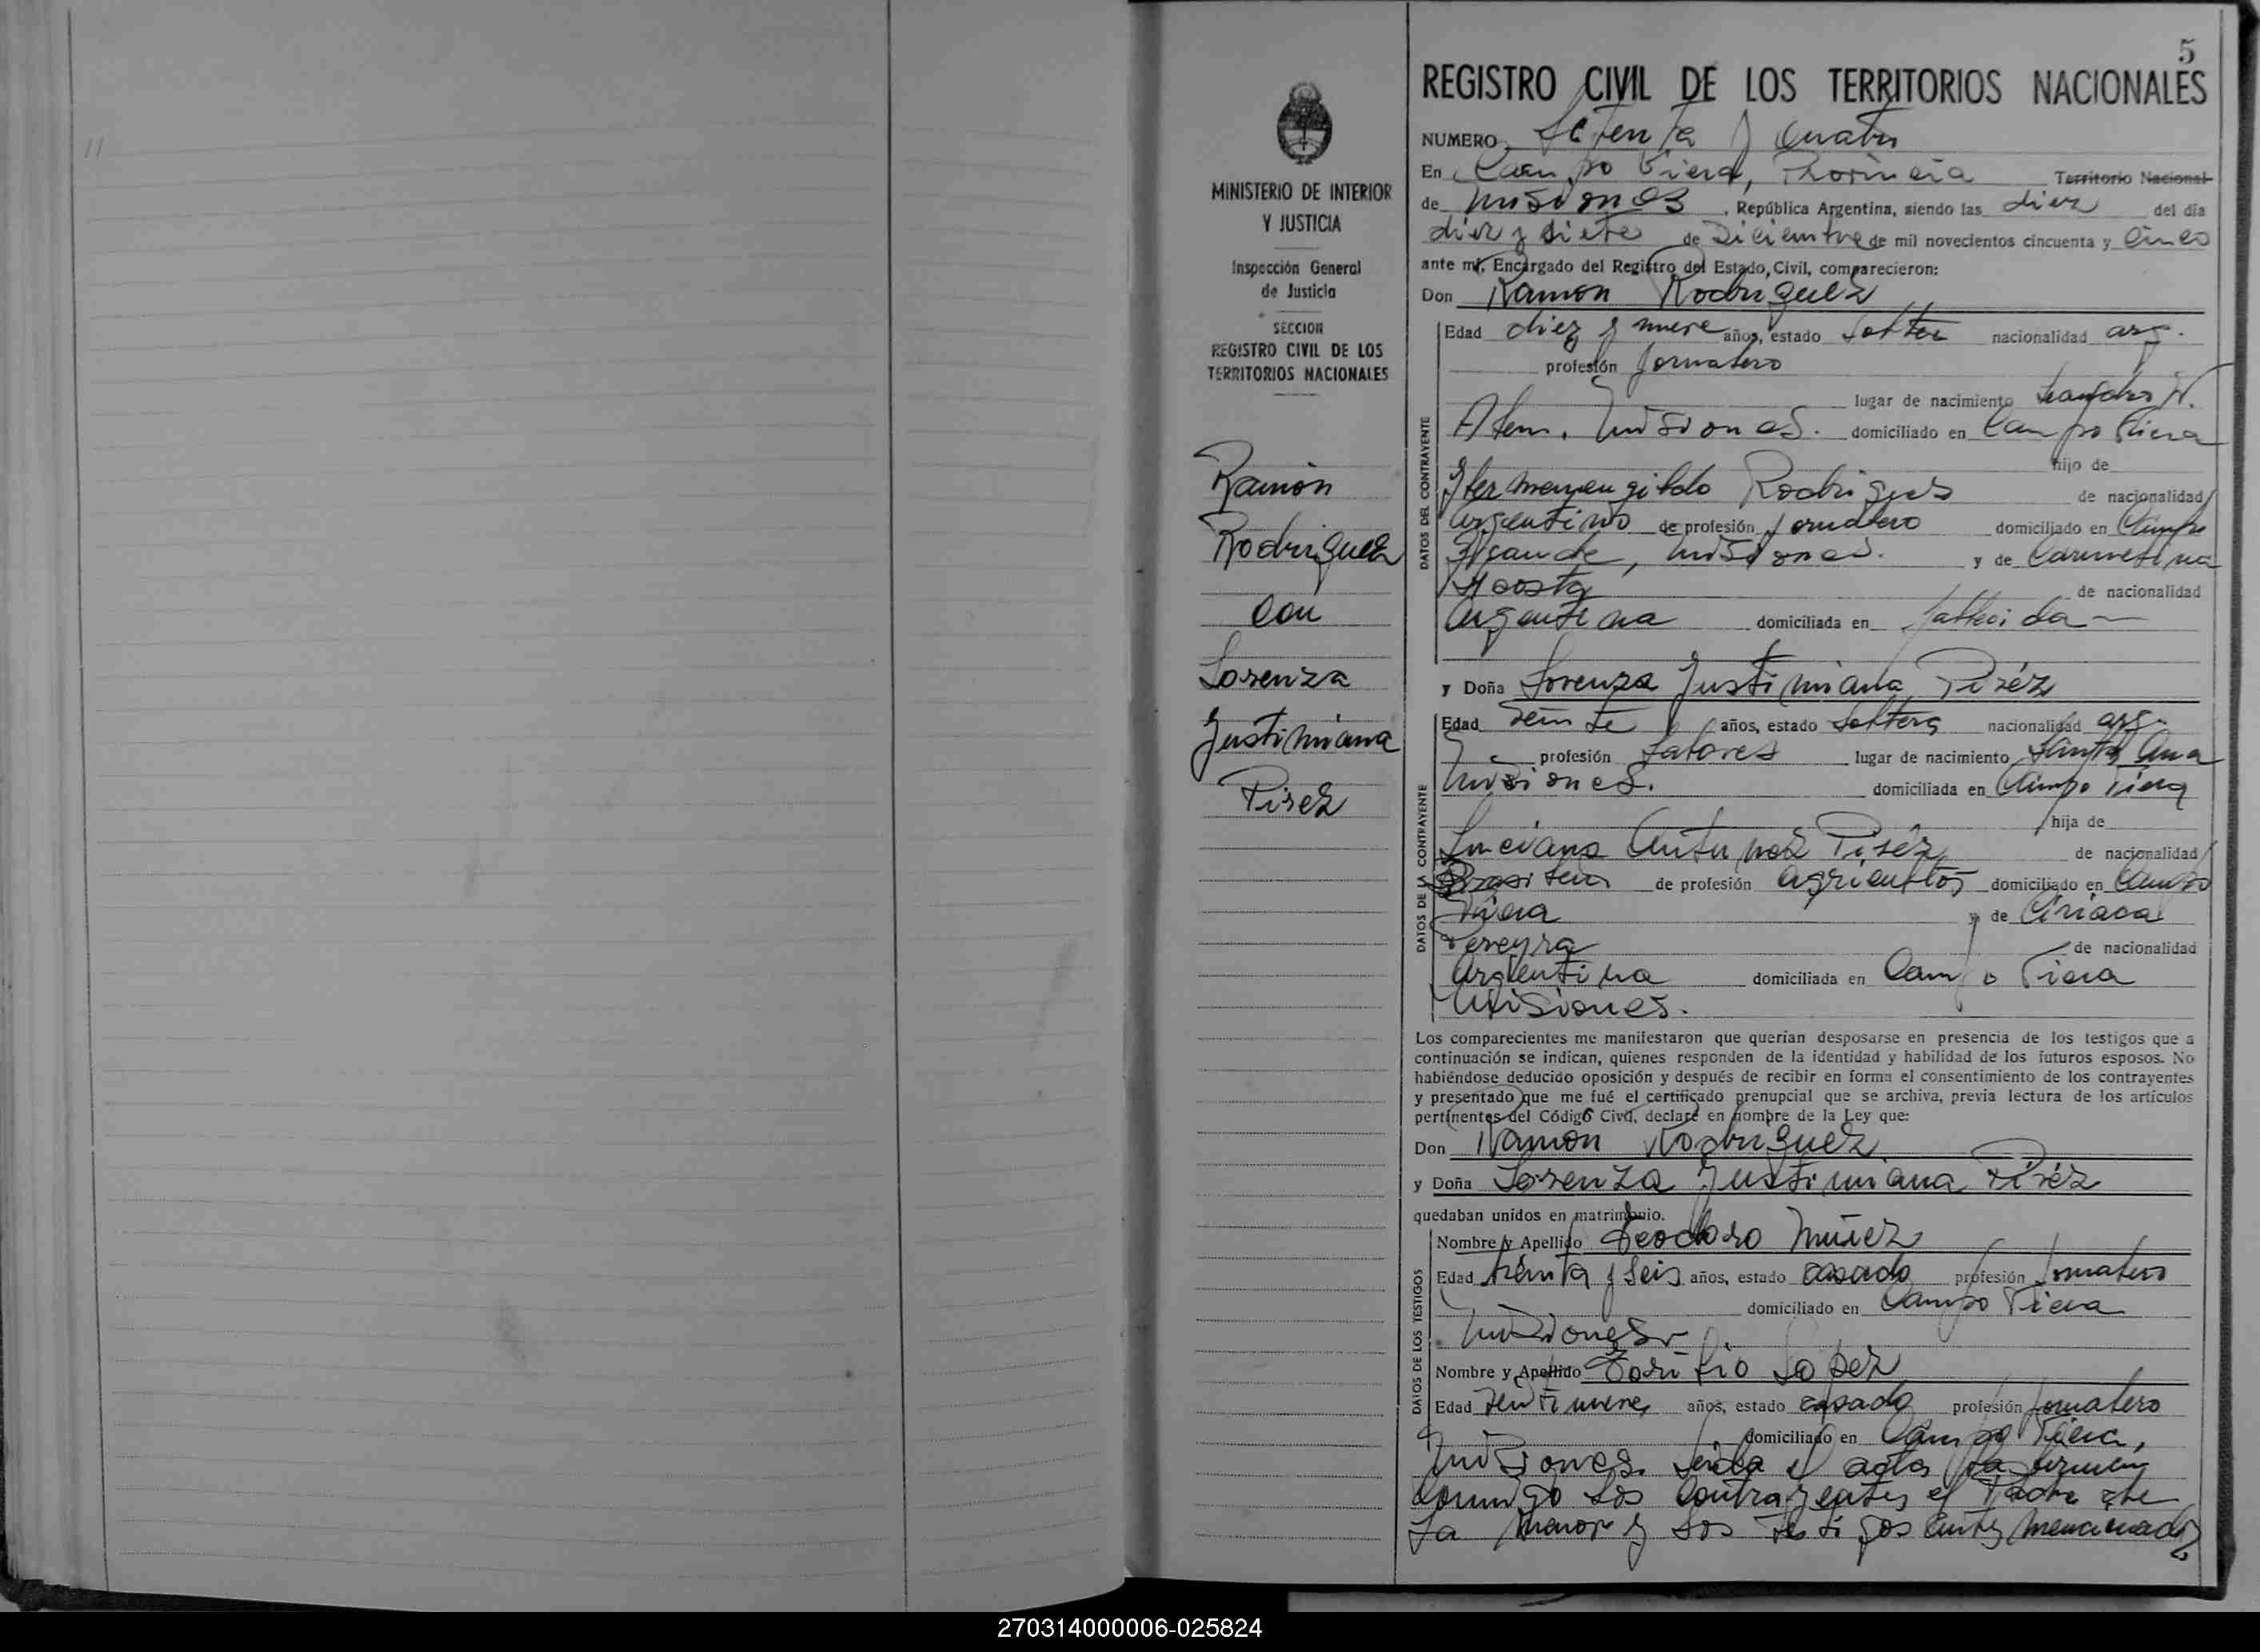 11
5
REGISTRO CIVIL DE LOS TERRITORIOS NACIONALES
MINISTERIO DE INTERIOR
Y JUSTICIA
Inspección General
de Justicia
SECCION
REGISTRO CIVIL DE LOS
TERRITORIOS NACIONALES
Ramón
Rodriguez
con
Lorenza
Justiniana
Pirez
NUMERO Setenta y Cuatro
En Campo Viera, Provincia Territorio Nacional
de Misiones, República Argentina, siendo las diez del día
diez y siete de Diciembre de mil novecientos cincuenta y Cinco
ante mí, Encargado del Registro del Estado Civil, comparecieron:
Don Ramón Rodriguez
DATOS DEL CONTRAYENTE
Edad diez y nueve años, estado soltero nacionalidad arg.
profesión Jornalero
lugar de nacimiento Leandro N.
Alem. Misiones. domiciliado en Campo Viera
hijo de
Rodriguez de nacionalidad
Argentino de profesión Jornalero domiciliado en Campo
Grande, Misiones. y de
Acosta de nacionalidad
Argentina domiciliada en
y Doña Lorenza Justiniana Piréz
DATOS DE LA CONTRAYENTE
Edad Veinte años, estado Soltera nacionalidad arg.
profesión Labores lugar de nacimiento Santa Ana
Misiones. domiciliada en Campo Viera
hija de
Luciano Antunez Piréz de nacionalidad
de profesión Agricultor domiciliado en Campo
Viera y de Ciriaca
Pereyra de nacionalidad
Argentina domiciliada en Campo Viera
Misiones.
Los comparecientes me manifestaron que querían desposarse en presencia de los testigos que a
continuación se indican, quienes responden de la identidad y habilidad de los futuros esposos. No
habiéndose deducido oposición y después de recibir en forma el consentimiento de los contrayentes
y presentado que me fué el certificado prenupcial que se archiva, previa lectura de los artículos
pertinentes del Código Civil, declaré en nombre de la Ley que:
Don Ramón Rodriguez
y Doña Lorenza Justiniana Piréz
quedaban unidos en matrimonio.
DATOS DE LOS TESTIGOS
Nombre y Apellido Teodoro
Edad treinta y seis años, estado casado profesión Jornalero
domiciliado en Campo Viera
Misiones
Nombre y Apellido Toribio Lopez
Edad veintinueve años, estado casado profesión Jornalero
domiciliado en Campo Viera,
Misiones. Leida el acta la firman
conmigo los Contrayentes el Padre de
la menor y los testigos antes mencionados
270314000006-025824